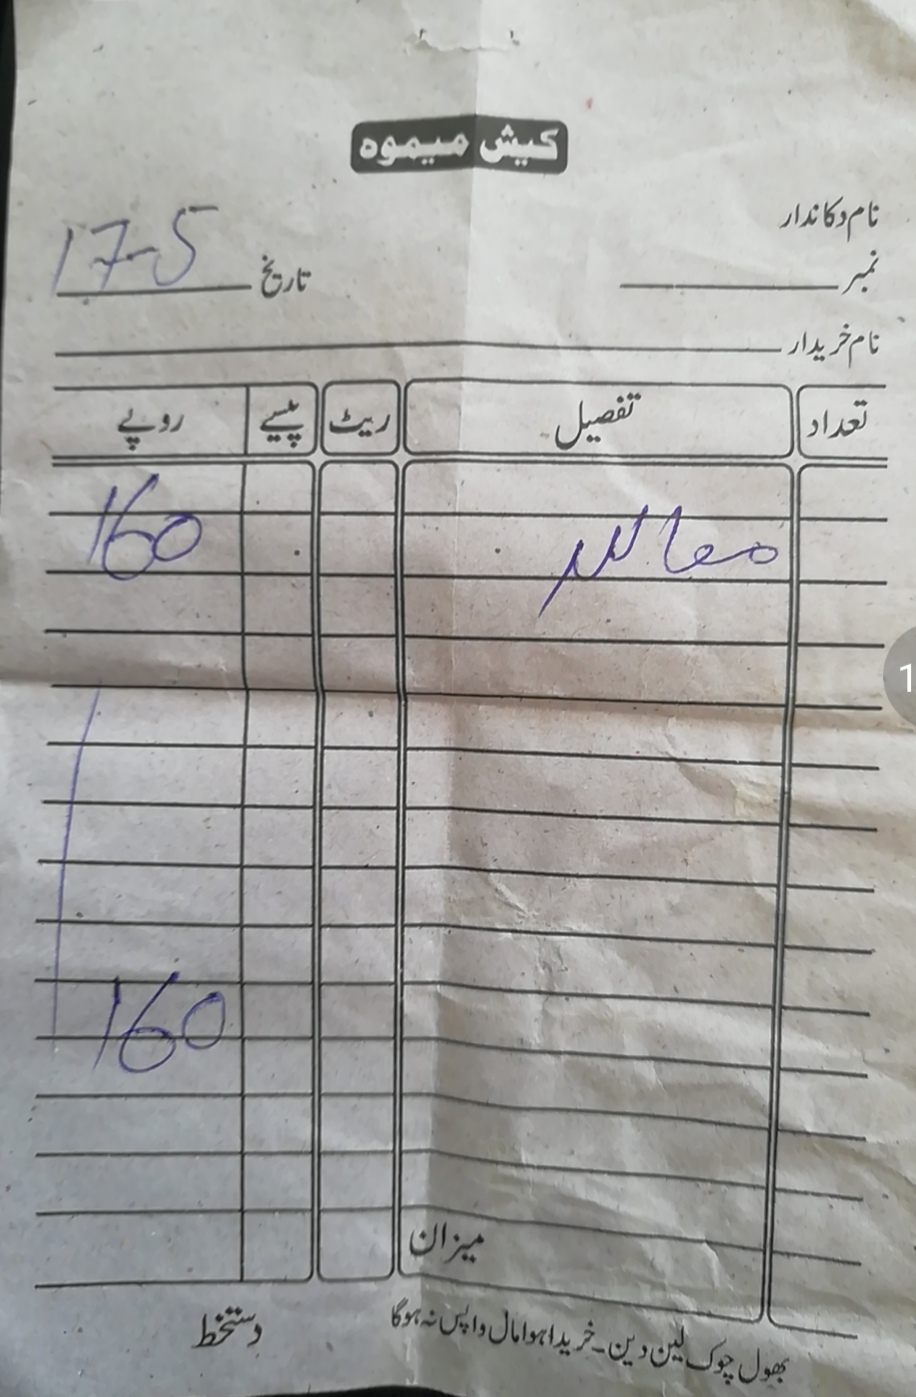 کیش میموہ
نام دکاندار
نمبر تاریخ 17-5
نام خریدار
تعداد تفصیل ریٹ پیسے روپے
160
160
میزان
بھول چوک لین دین۔ خریدا ہوا مال واپس نہ ہوگا
دستخط
1